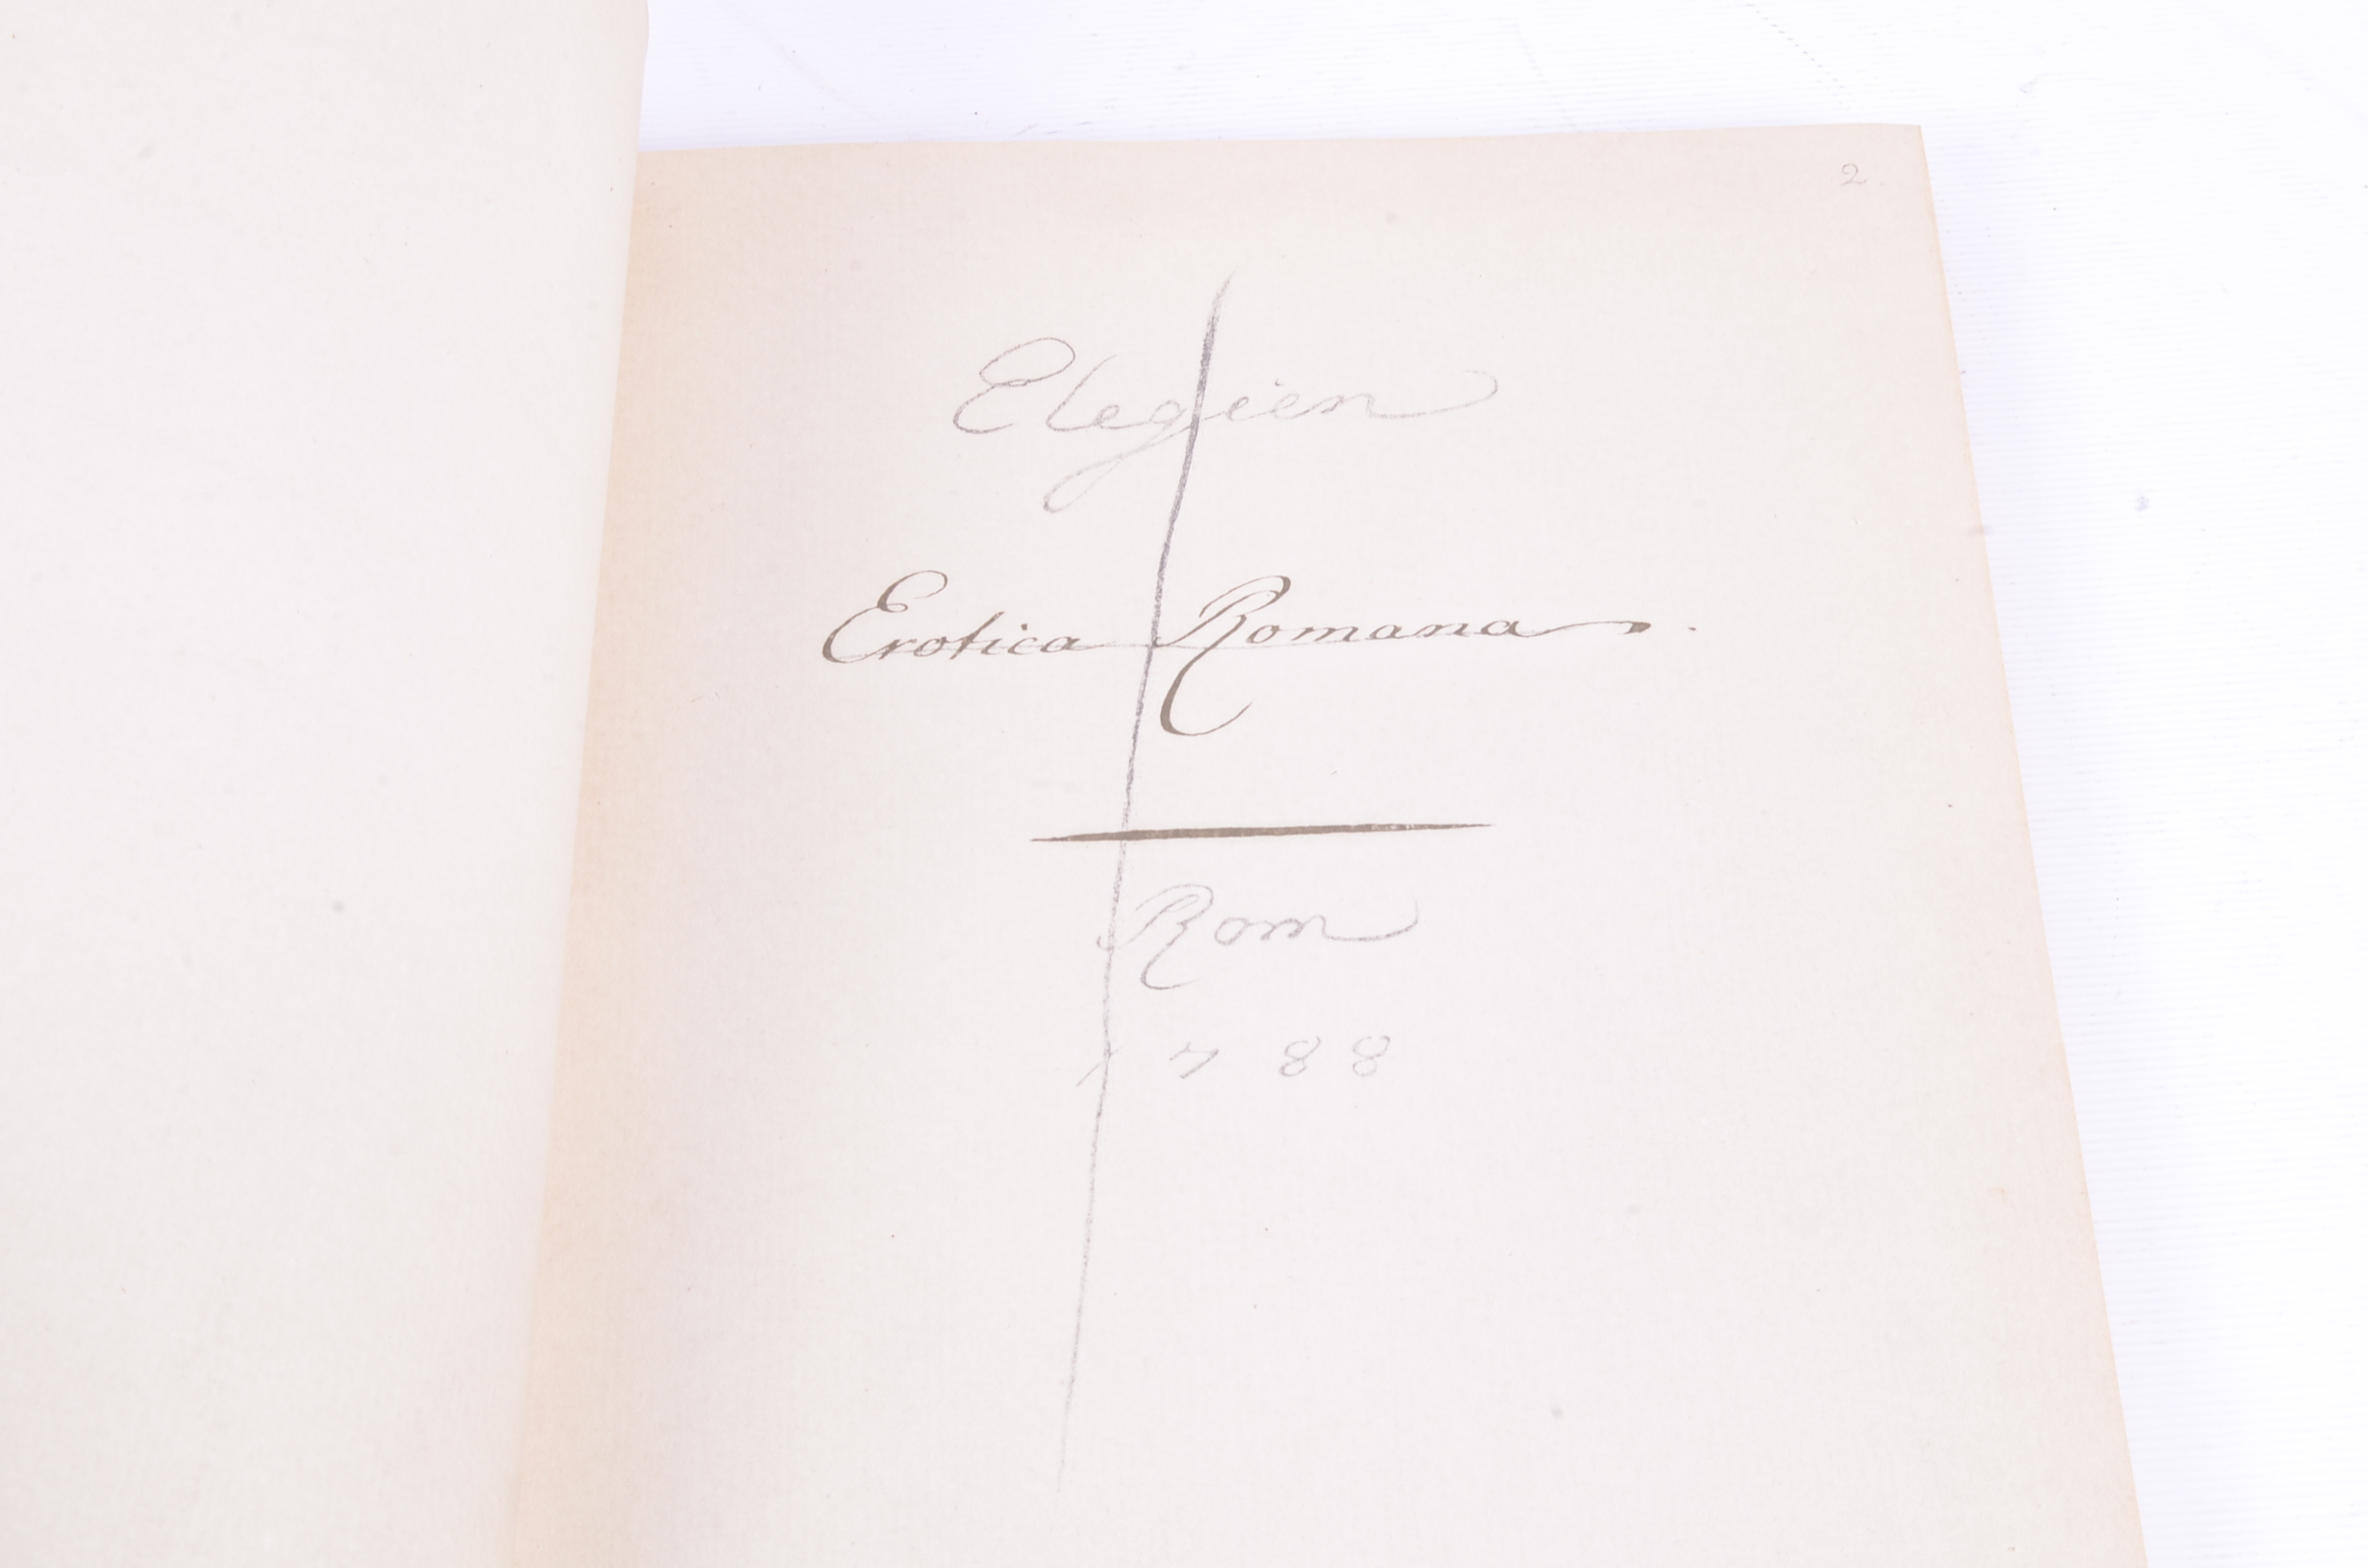 2.
Elegien
Erotica Romana.
Rom
1788